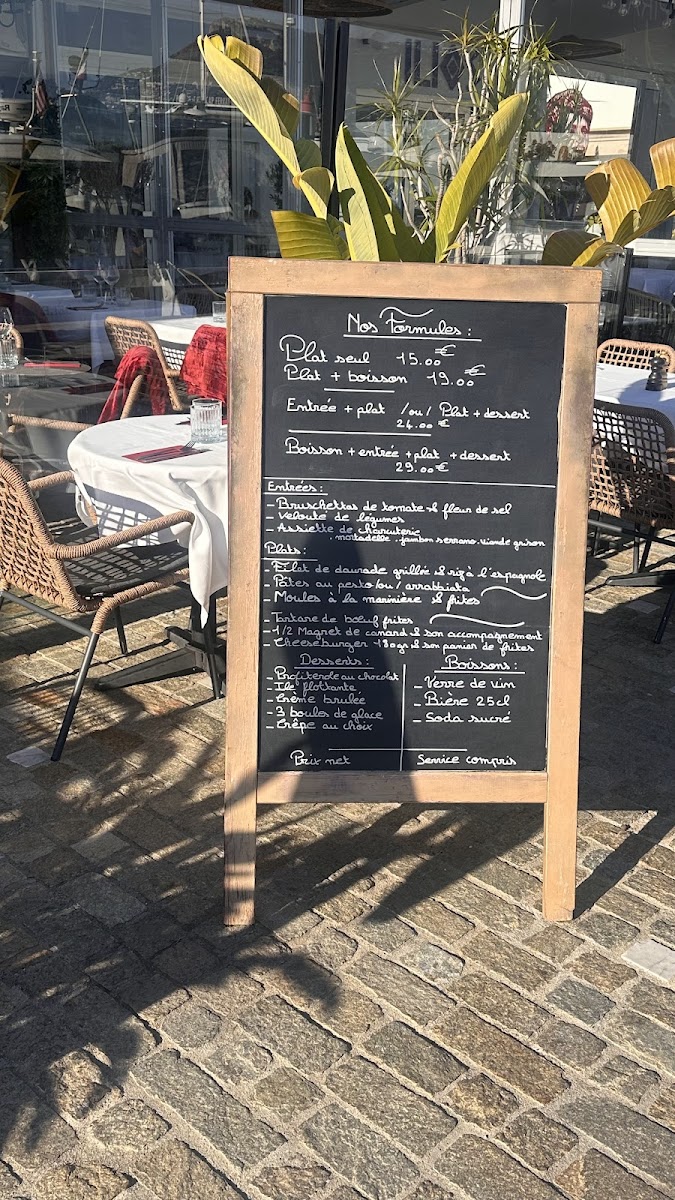 Nos Formules :
Plat seul 15.00€
Plat + boisson 19.00€
Entrée + plat /ou/ Plat + dessert
24.00€
Boisson + entrée + plat + dessert
29.00€
Entrées :
- Bruschettas de tomate & fleur de sel
- Velouté de légumes
- Assiette de charcuterie
. mortadelle . jambon serrano . viande grison
Plats :
- Filet de daurade grillée & riz à l'espagnole
- Pâtes au pesto /ou/ arrabbiata
- Moules à la marinière & frites
- Tartare de bœuf frites
- 1/2 Magret de canard & son accompagnement
- Cheeseburger 180gr & son panier de frites
Desserts :
- Profiterole au chocolat
- Ile flottante
- Crème brulée
- 3 boules de glace
- Crêpe au choix
Boissons :
- Verre de vin
- Bière 25cl
- Soda sucré
Prix net
Service compris